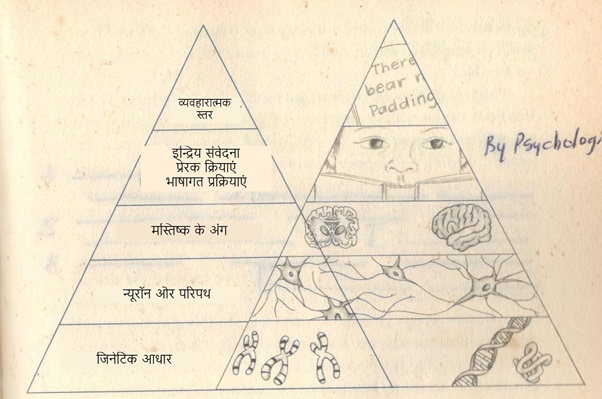 व्यवहारात्मक
स्तर
There
bear n
Padding
इन्द्रिय संवेदना
प्रेरक क्रियाएं
भाषागत प्रक्रियाएं
By Psychologi
मस्तिष्क के अंग
न्यूरॉन ओर परिपथ
जिनेटिक आधार